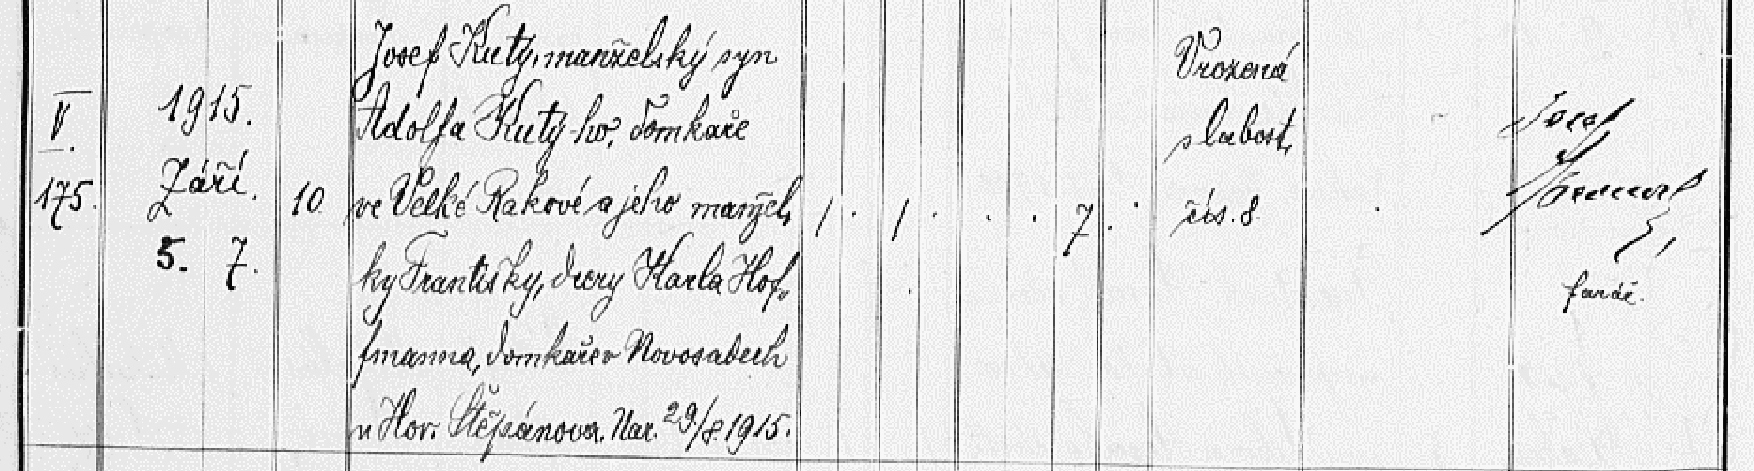 V.
175.
1915.
Září
5. 7.
10.
Josef Kutý, manželský syn
Adolfa Kutý-ho, domkáře
ve Velké Rakové a jeho manžel,
ky Františky, dcery Karla Hof,
fmanna, domkáře v Novosadech
u Hor. Štěpánova. Nar. 29/8. 1915.
1 . 1 . . . 7 .
Vrozená
slabost,
čís. 8.
Josef
farář.